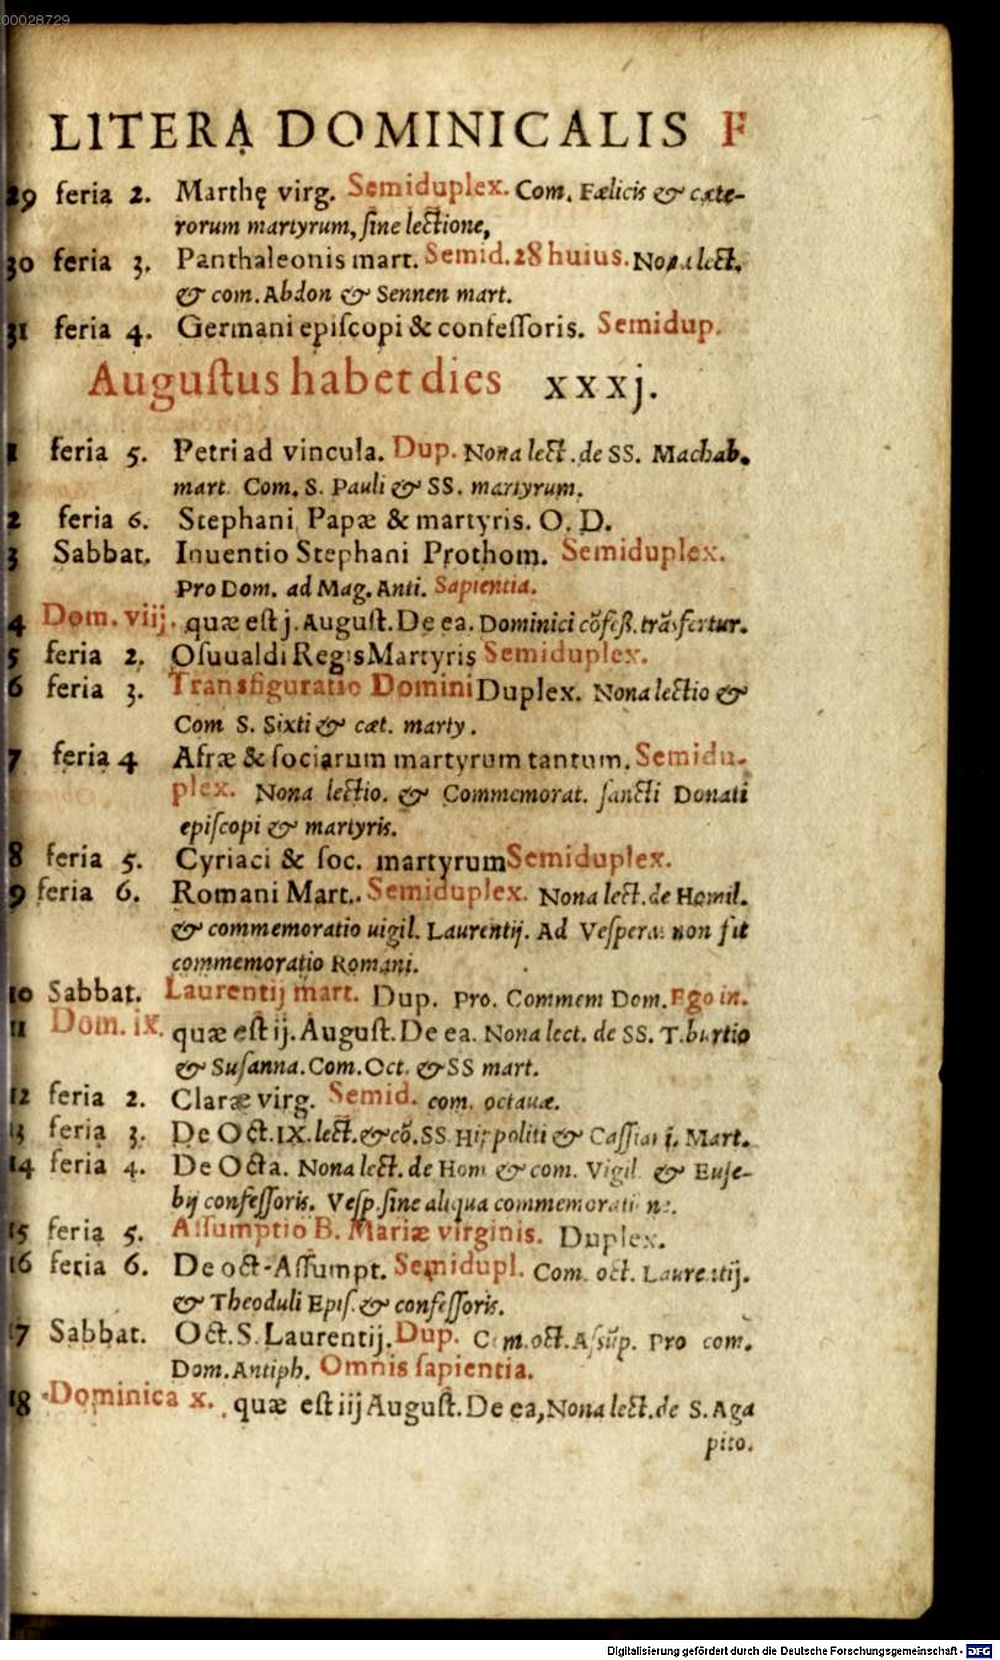 00028729
LITERA DOMINICALIS F
29 feria 2. Marthę virg. Semiduplex. Com. Fælicis & cæte-
rorum martyrum, ſine lectione,
30 feria 3. Panthaleonis mart. Semid. 28 huius. Nona lect.
& com. Abdon & Sennen mart.
31 feria 4. Germani epiſcopi & confeſſoris. Semidup.
Auguſtus habet dies xxxj.
1 feria 5. Petri ad vincula. Dup. Nona lect. de SS. Machab.
mart. Com. S. Pauli & SS. martyrum.
2 feria 6. Stephani Papæ & martyris. O. D.
3 Sabbat. Inuentio Stephani Prothom. Semiduplex.
Pro Dom. ad Mag. Anti. Sapientia.
4 Dom. viij. quæ eſt j. Auguſt. De ea. Dominici cõfeß. trãſfertur.
5 feria 2. Oſuualdi Regis Martyris Semiduplex.
6 feria 3. Transfiguratio Domini Duplex. Nona lectio &
Com S. Sixti & cæt. marty.
7 feria 4 Afræ & ſociarum martyrum tantum. Semidu-
plex. Nona lectio. & Commemorat. ſancti Donati
epiſcopi & martyris.
8 feria 5. Cyriaci & ſoc. martyrum Semiduplex.
9 feria 6. Romani Mart.. Semiduplex. Nona lect. de Homil.
& commemoratio uigil. Laurentij. Ad Veſperas non fit
commemoratio Romani.
10 Sabbat. Laurentij mart. Dup. Pro. Commem Dom. Ego in.
11 Dom. ix. quæ eſt ij. Auguſt. De ea. Nona lect. de SS. Tiburtio
& Suſanna. Com. Oct. & SS mart.
12 feria 2. Claræ virg. Semid. com. octauæ.
13 feria 3. De Oct. IX. lect. & cõ. SS. Hippoliti & Caſſiani. Mart.
14 feria 4. De Octa. Nona lect. de Hom & com. Vigil & Euſe-
bij confeſſoris. Veſp. ſine aliqua commemoratione.
15 feria 5. Aſſumptio B. Mariæ virginis. Duplex.
16 feria 6. De oct-Aſſumpt. Semidupl. Com. oct. Laurentij.
& Theoduli Epiſ. & confeſſoris.
17 Sabbat. Oct. S. Laurentij. Dup. Com. oct. Aſsũp. Pro com.
Dom. Antiph. Omnis ſapientia.
18 Dominica x. quæ eſt iij Auguſt. De ea, Nona lect. de S. Aga
pito.
Digitalisierung gefördert durch die Deutsche Forschungsgemeinschaft - DFG